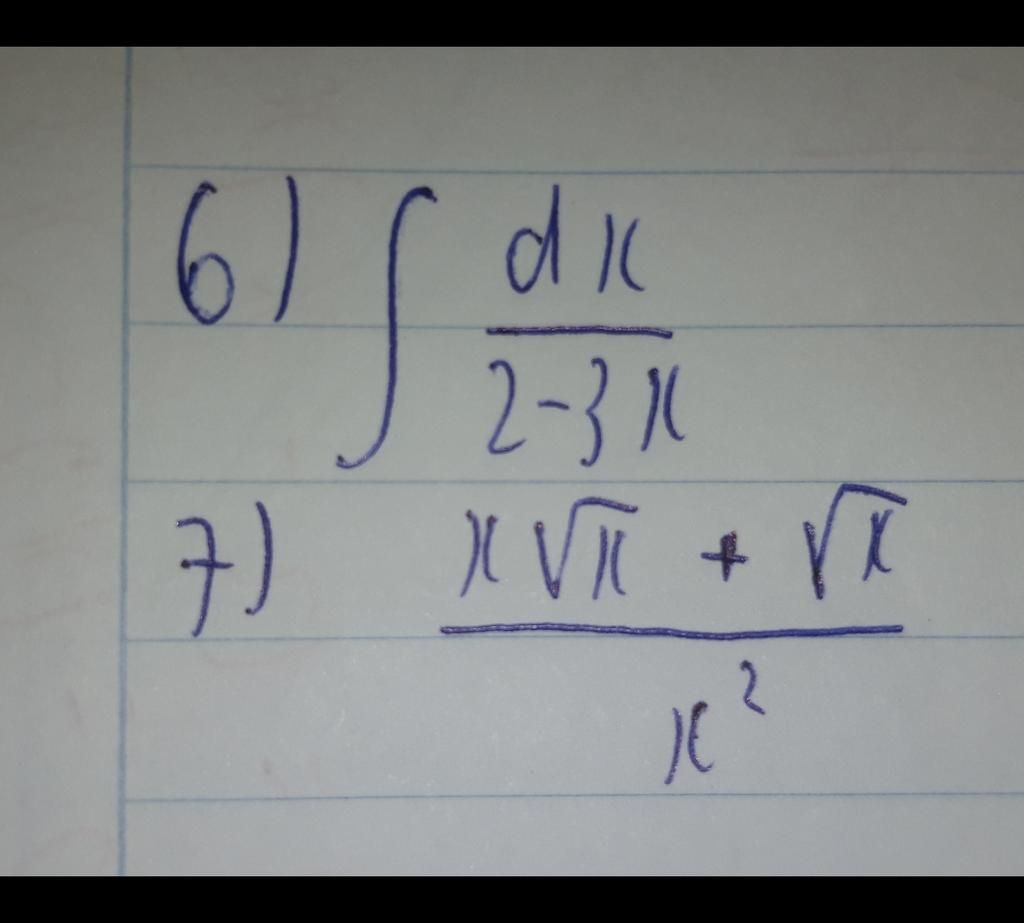 6) ∫ dx / 2-3x
7) x√x + √x / x²